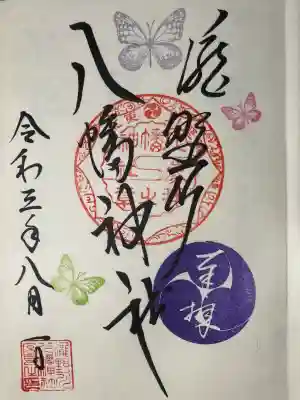 瀧野川
八幡神社
奉拝
令和三年八月一日